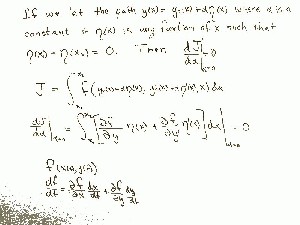 If we let the path y(x) = y₁(x) + αη(x) where α is a
constant & η(x) is any function of x such that
η(x₁) = η(x₂) = 0. Then dJ/dα|α=0 = 0
J = ∫_{x₁}^{x₂} f(y₁(x)+αη(x), y₁'(x)+αη'(x), x) dx
dJ/dα|α=0 = ∫_{x₁}^{x₂} [∂f/∂y η(x) + ∂f/∂y' η'(x)] dx|α=0 = 0
f(x(t), y(t))
df/dt = ∂f/∂x dx/dt + ∂f/∂y dy/dt